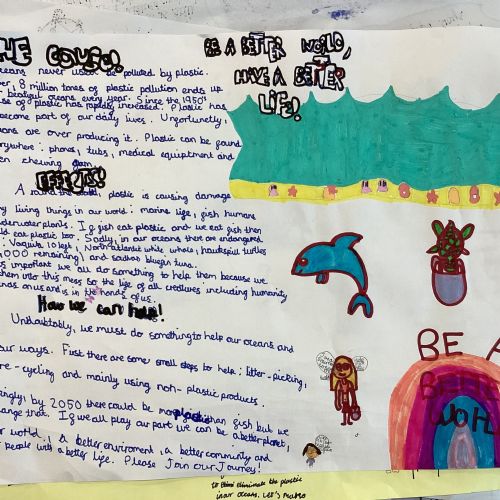 THE COUGH!
BE A BETTER WORLD,
HAVE A BETTER
LIFE!
oceans never used be polluted by plastic.
8 million tones of plastic pollution ends up
our beatiful oceans every year. Since the 1950's
use of plastic has rapidly increased. Plastic has
become part of our daily lives. Unfortunetly,
are over producing it. Plastic can be found
everywhere: phons, tubs, medical equiptment and
even chewing gum.
EFFECTS!
A round the world, plastic is causing damage
living things in our world: marine life, fish humans
underwater plants. If fish eat plastic and we eat fish then
eat plastic too. Sadly, in our oceans there are endangered
Vaquita 10 left, North atlantic white whale, hawksbill turtles
000 remaining) and southern bluefin tuna.
important we all do something to help then because we
them into this mess so the life of all creatures including humanity
is in the hands of us.
How we can help!
Undoubtably, we must do something to help our oceans and
our ways. First there are some small steps to help; litter-picking,
re-cycling and mainly using non-plastic products.
by 2050 there could be more plastic than fish but we
change that. If we all play our part we can be a better planet,
world, a better enviroment, a better community and
people with a better life. Please Join our Journey!
BE A
BETTER
WORLD
eliminate the plastic
in our oceans. Let's make